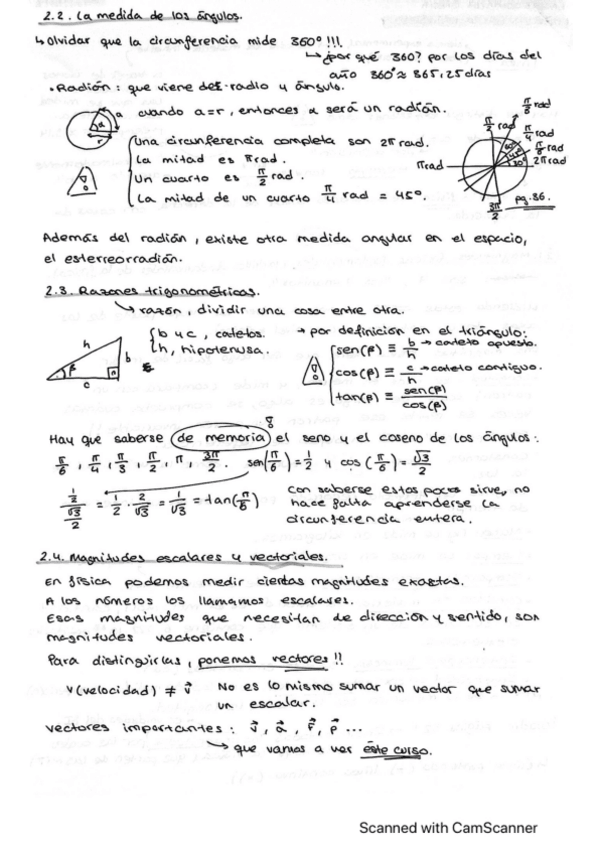 2.2. La medida de los ángulos.
↳ Olvidar que la circunferencia mide 360º !!!.
↳ ¿por qué 360? por los días del
año 360º ≈ 365,25 días
• Radián: que viene de radio y ángulo.
a cuando a=r, entonces α será un radián.
α
r
Una circunferencia completa son 2π rad.
La mitad es π rad.
Un cuarto es π/2 rad.
La mitad de un cuarto π/4 rad = 45º.
π/2 rad
π/3 rad
π/4 rad
π/6 rad
2π rad
π rad
60º
45º
30º
3π/2
pg. 36.
Además del radián, existe otra medida angular en el espacio,
el esterreorradián.
2.3. Razones trigonométricas.
↳ razón, dividir una cosa entre otra.
b y c, catetos.
h, hipotenusa.
h
b
β
c
→ por definición en el triángulo:
sen(β) ≡ b/h → cateto opuesto.
cos(β) ≡ c/h → cateto contiguo.
tan(β) ≡ sen(β)/cos(β)
Hay que saberse de memoria el seno y el coseno de los ángulos:
π/6, π/4, π/3, π/2, π, 3π/2. sen(π/6) = 1/2 y cos(π/6) = √3/2
(1/2)/(√3/2) = 1/2 · 2/√3 = 1/√3 = tan(π/6)
con saberse estos pocos sirve, no
hace falta aprenderse la
circunferencia entera.
2.4. Magnitudes escalares y vectoriales.
En física podemos medir ciertas magnitudes exactas.
A los números los llamamos escalares.
Esas magnitudes que necesitan de dirección y sentido, son
magnitudes vectoriales.
Para distinguirlas, ponemos vectores !!
v (velocidad) ≠ v⃗ No es lo mismo sumar un vector que sumar
un escalar.
vectores importantes: v⃗, a⃗, F⃗, p⃗ ...
↳ que vamos a ver este curso.
Scanned with CamScanner